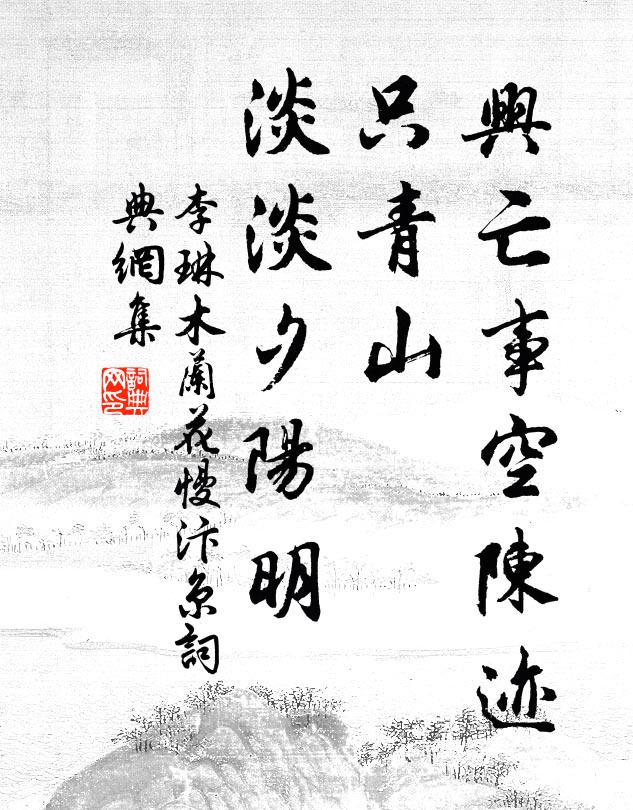 興亡事空陳迹
只青山
淡淡夕陽明
李琳木蘭花慢汴京詞
典網集
詞典
网印